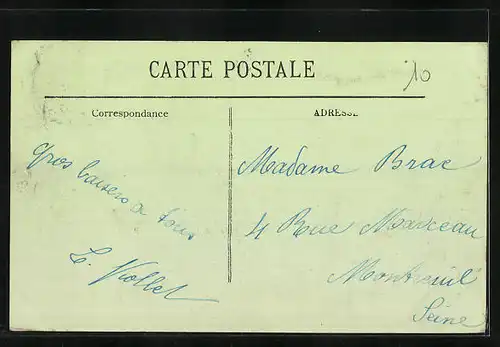 CARTE POSTALE
10
Correspondance
ADRESSE
gros baisers a tous
Madame Brac
4 Rue Marceau
Montreuil
Seine